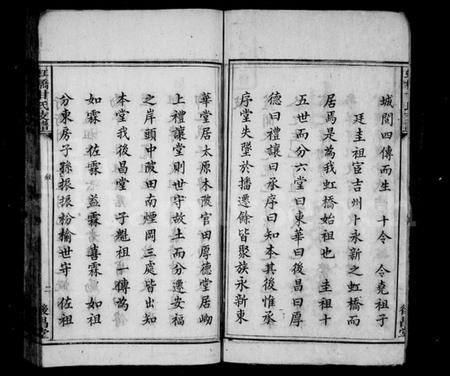 城閣四傳而生 十令 令堯祖子
廷圭祖宦吉州卜永新之虹橋而
居焉是為我虹橋始祖也 圭祖十
五世而分六堂曰東華曰後昌曰厚
德曰禮讓曰承序曰知本其後惟承
序堂失墜於播遷餘皆聚族永新東
華堂居太原木陂官田厚德堂居岰
上禮讓堂則世守故土而分遷安福
之岸頭中陂田南煙岡三處皆出知
本堂我後昌堂 子魁祖一傳為
如霖 佐霖 藍霖 喜霖 如祖
分東房子孫振振枌榆世守 佐祖
虹橋尹氏支譜
敘
二
後昌堂
後昌堂